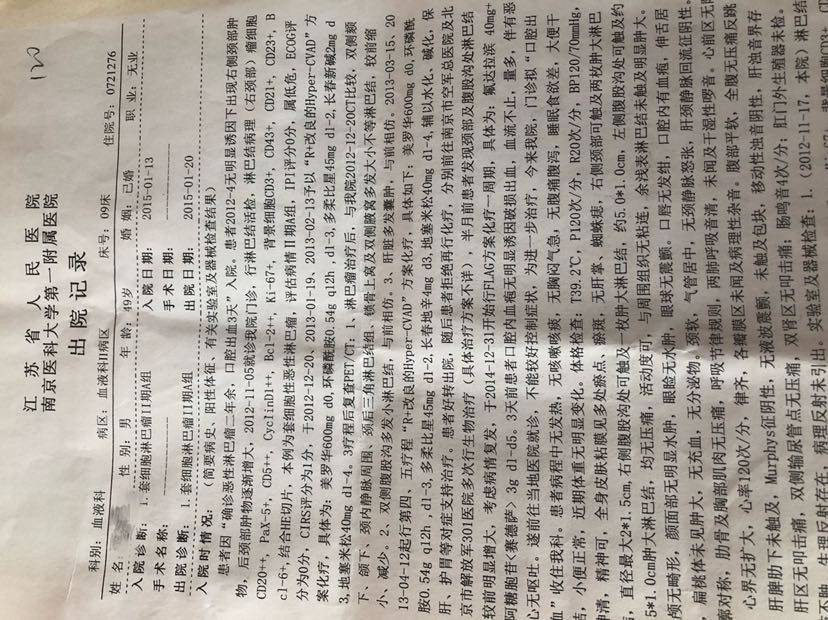 120
江苏省人民医院
南京医科大学第一附属医院
出院记录
科别：血液科 病区：血液科II病区 床号：09床 住院号：0721276
姓名： 性别：男 年龄：49岁 婚姻：已婚 职业：无业
入院诊断：1.套细胞淋巴瘤II期A组 入院日期：2015-01-13
手术名称： 手术日期：
出院诊断：1.套细胞淋巴瘤II期A组 出院日期：2015-01-20
入院时情况：（简要病史、阳性体征、有关实验室及器械检查结果）
患者因“确诊恶性淋巴瘤二年余，口腔出血3天”入院。患者2012-4无明显诱因下出现右侧颈部肿
物，后颈部肿物逐渐增大，2012-11-05就诊我院门诊，行淋巴结活检，淋巴结病理（右颈部）瘤细胞
CD20++，PaX-5+，CD5++，CyclinD1++，Bcl-2++，Ki-67+，背景细胞CD3+，CD43+，CD21+，CD23+，B
cl-6++，结合HE切片，本例为套细胞性恶性淋巴瘤，评估病情Ⅱ期A组，IPI评分0分，属低危，ECOG评
分为0分，CIRS评分为1分，于2012-12-20、2013-01-19、2013-02-13予以“R+改良的Hyper-CVAD”方
案化疗，具体为：美罗华600mg d0,环磷酰胺0.54g q12h ,d1-3,多柔比星45mg d1-2,长春新碱2mg d
3,地塞米松40mg d1-4。3疗程后复查PET/CT：1、淋巴瘤治疗后，与我院2012-12-20CT比较，双侧颏
下、颌下、颈内静脉周围、颈后三角淋巴结组、锁骨上窝及双侧腋窝多发大小不等淋巴结，较前缩
小、减少。2、双侧腹股沟多发小淋巴结，与前相仿。3、肝脏多发囊肿，与前相仿。2013-03-15、20
13-04-12起行第四、五疗程“R+改良的Hyper-CVAD”方案化疗，具体如下：美罗华600mg d0,环磷酰
胺0.54g q12h ,d1-3,多柔比星45mg d1-2,长春地辛4mg d3,地塞米松40mg d1-4,辅以水化、碱化、保
肝、护胃等对症支持治疗。患者好转出院，随后患者拒绝再行化疗，分别前往南京市空军总医院及北
京市解放军301医院多次行生物治疗（具体治疗方案不详），半月前患者发现颈部及腹股沟处淋巴结
较前明显增大，考虑病情复发，于2014-12-31开始行FLAG方案化疗一周期，具体为：氟达拉滨 40mg+
阿糖胞苷<赛德萨> 3g d1-d5。3天前患者口腔内血疱无明显诱因破损出血，血流不止，量多，伴有恶
心无呕吐。遂前往当地医院就诊，不能较好控制症状，为进一步治疗，今来我院，门诊拟“口腔出
血”收住我科。患者病程中无发热，无咳嗽咳痰，无胸闷气急，无腹痛腹泻，睡眠食欲差，大便干
结，小便正常，近期体重无明显变化。体格检查：T39.2℃，P120次/分，R20次/分，BP120/70mmHg，
神清，精神可，全身皮肤粘膜见多处瘀点、瘀斑，无肝掌、蜘蛛痣，右侧颈部可触及两枚肿大淋巴
，直径最大2*1.5cm，右侧腹股沟处可触及一枚肿大淋巴结，约5.0*1.0cm，左侧腹股沟处可触及约
5*1.0cm肿大淋巴结，均无压痛，活动度可，与周围组织无粘连，余浅表淋巴结未触及明显肿大。
颅无畸形，颜面部无明显水肿，眼睑无水肿，眼球无震颤。口唇无发绀，口腔内有血疱，伸舌居
，扁桃体未见肿大，无充血，无分泌物。颈软，气管居中，无颈静脉怒张，肝颈静脉回流征阴性。
廓对称，肋骨及胸部肌肉无压痛，呼吸节律规则，两肺呼吸音清，未闻及干湿性啰音。心前区无隆
心界无扩大，心率120次/分，律齐，各瓣膜区未闻及病理性杂音。腹部平软，全腹无压痛反跳
肝脾肋下未触及，Murphys征阴性，无液波震颤，未触及包块，移动性浊音阴性，肝浊音界存
肝区无叩击痛，双侧输尿管点无压痛，双肾区无叩击痛；肠鸣音4次/分，肛门外生殖器未检。
不肿，生理反射存在，病理反射未引出。实验室及器械检查：1、(2012-11-17，本院）淋巴结